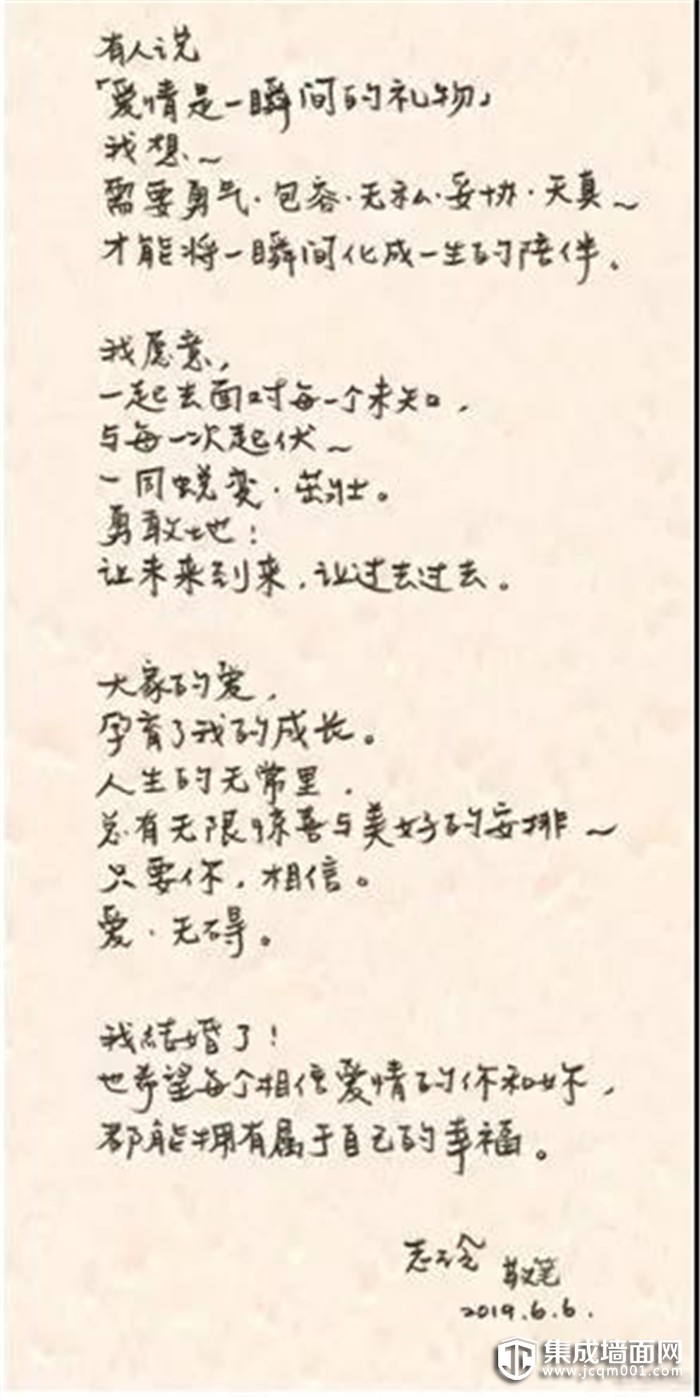 有人说
「爱情是一瞬间的礼物」
我想~
需要勇气·包容·无私·妥协·天真~
才能将一瞬间化成一生的陪伴。
我愿意,
一起去面对每一个未知,
与每一次起伏~
一同蜕变·茁壮。
勇敢地!
让未来到来,让过去过去。
大家的爱,
孕育了我的成长。
人生的无常里,
总有无限惊喜与美好的安排~
只要你,相信。
爱·无碍。
我结婚了!
也希望每个相信爱情的你和妳,
都能拥有属于自己的幸福。
志玲 敬笔
2019.6.6.
集成墙面网
www.jcqm001.com